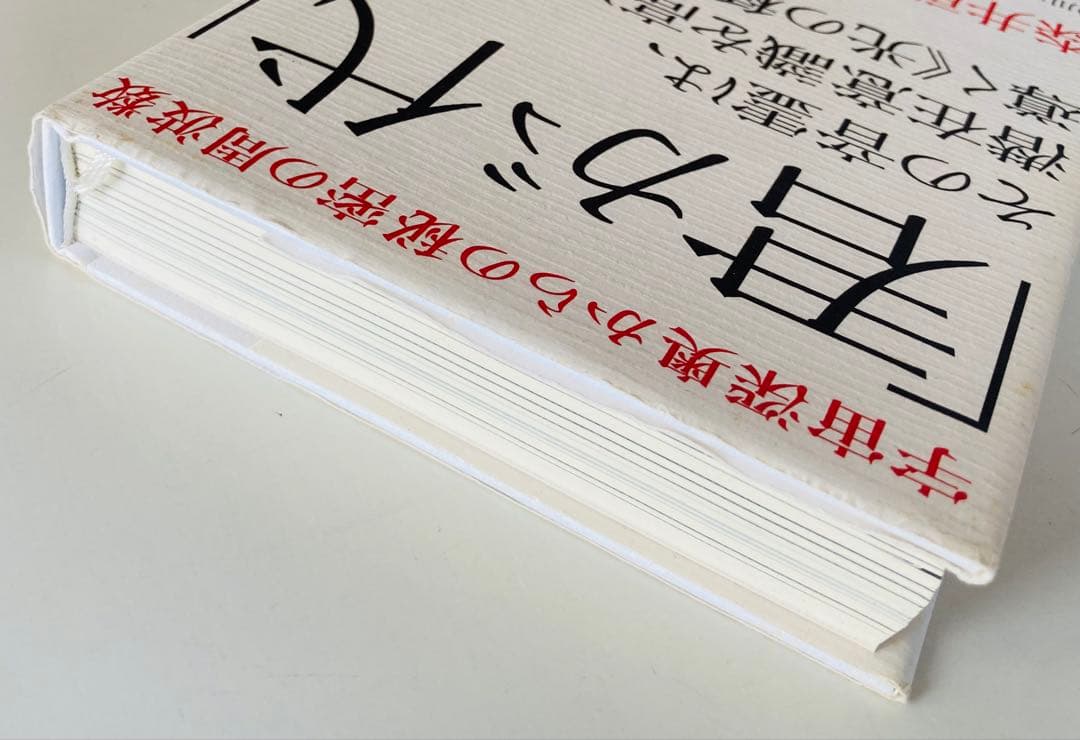 宇宙深奥からの秘密の周波数
「君が代」
その音霊は、
潜在意識を高
導く《光の
森井